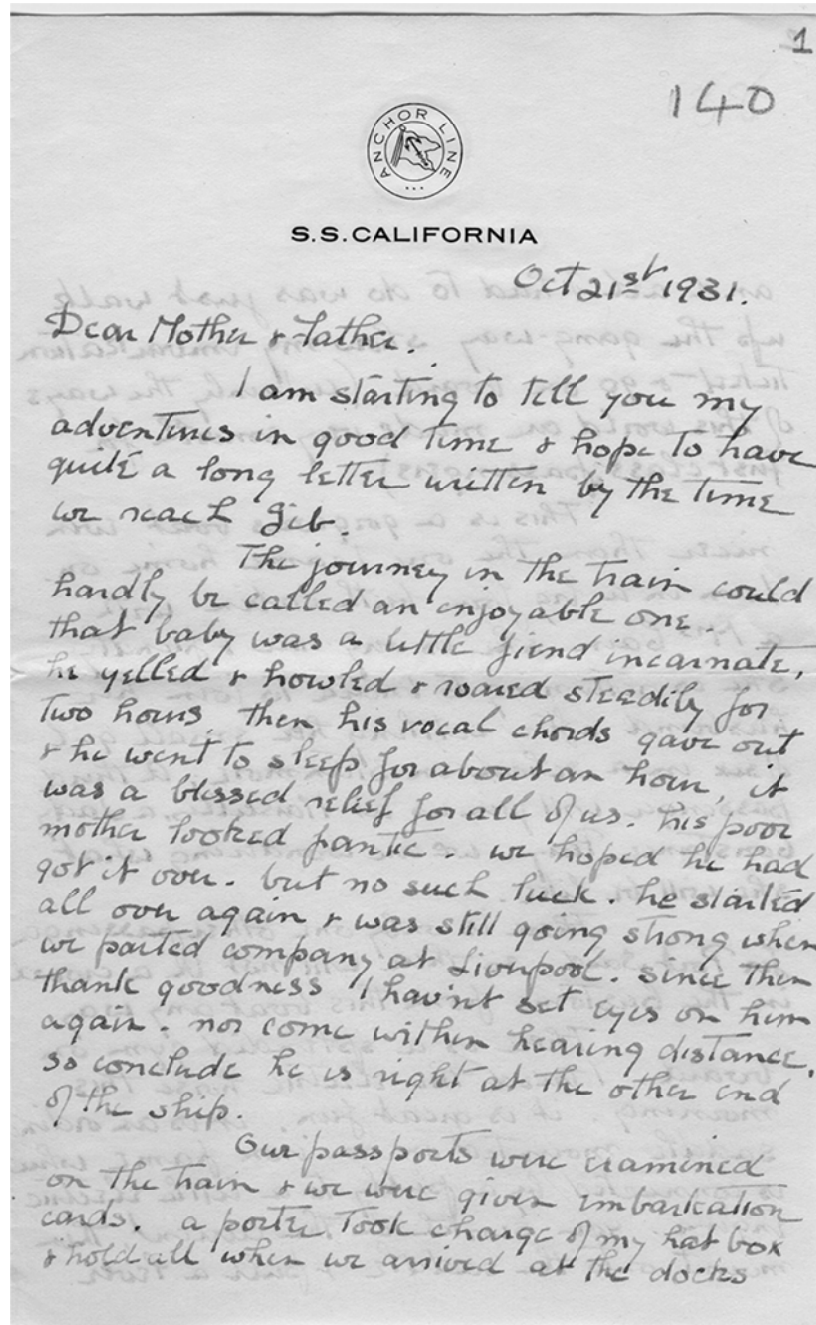 1
140
ANCHOR LINE
S.S. CALIFORNIA
Oct 21st 1931.
Dear Mother & Father.
I am starting to tell you my
adventures in good time & hope to have
quite a long letter written by the time
we reach Gib.
The journey in the train could
hardly be called an enjoyable one.
that baby was a little fiend incarnate,
he yelled & howled & roared steadily for
two hours then his vocal chords gave out
& he went to sleep for about an hour, it
was a blessed relief for all of us. his poor
mother looked frantic. we hoped he had
got it over. but no such luck. he started
all over again & was still going strong when
we parted company at Liverpool. since then
thank goodness I hav'nt set eyes on him
again. nor come within hearing distance.
so conclude he is right at the other end
of the ship.
Our passports were examined
on the train & we were given embarkation
cards. a porter took charge of my hat box
& hold all when we arrived at the docks